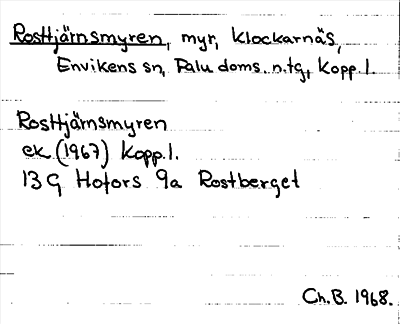 Rosttjärnsmyren, myr, Klockarnäs,
Envikens sn, Falu doms. n.tg, Kopp.l.
Rosttjärnsmyren
ek (1967) Kopp.l.
13 G Hofors 9a Rostberget
Ch.B. 1968.